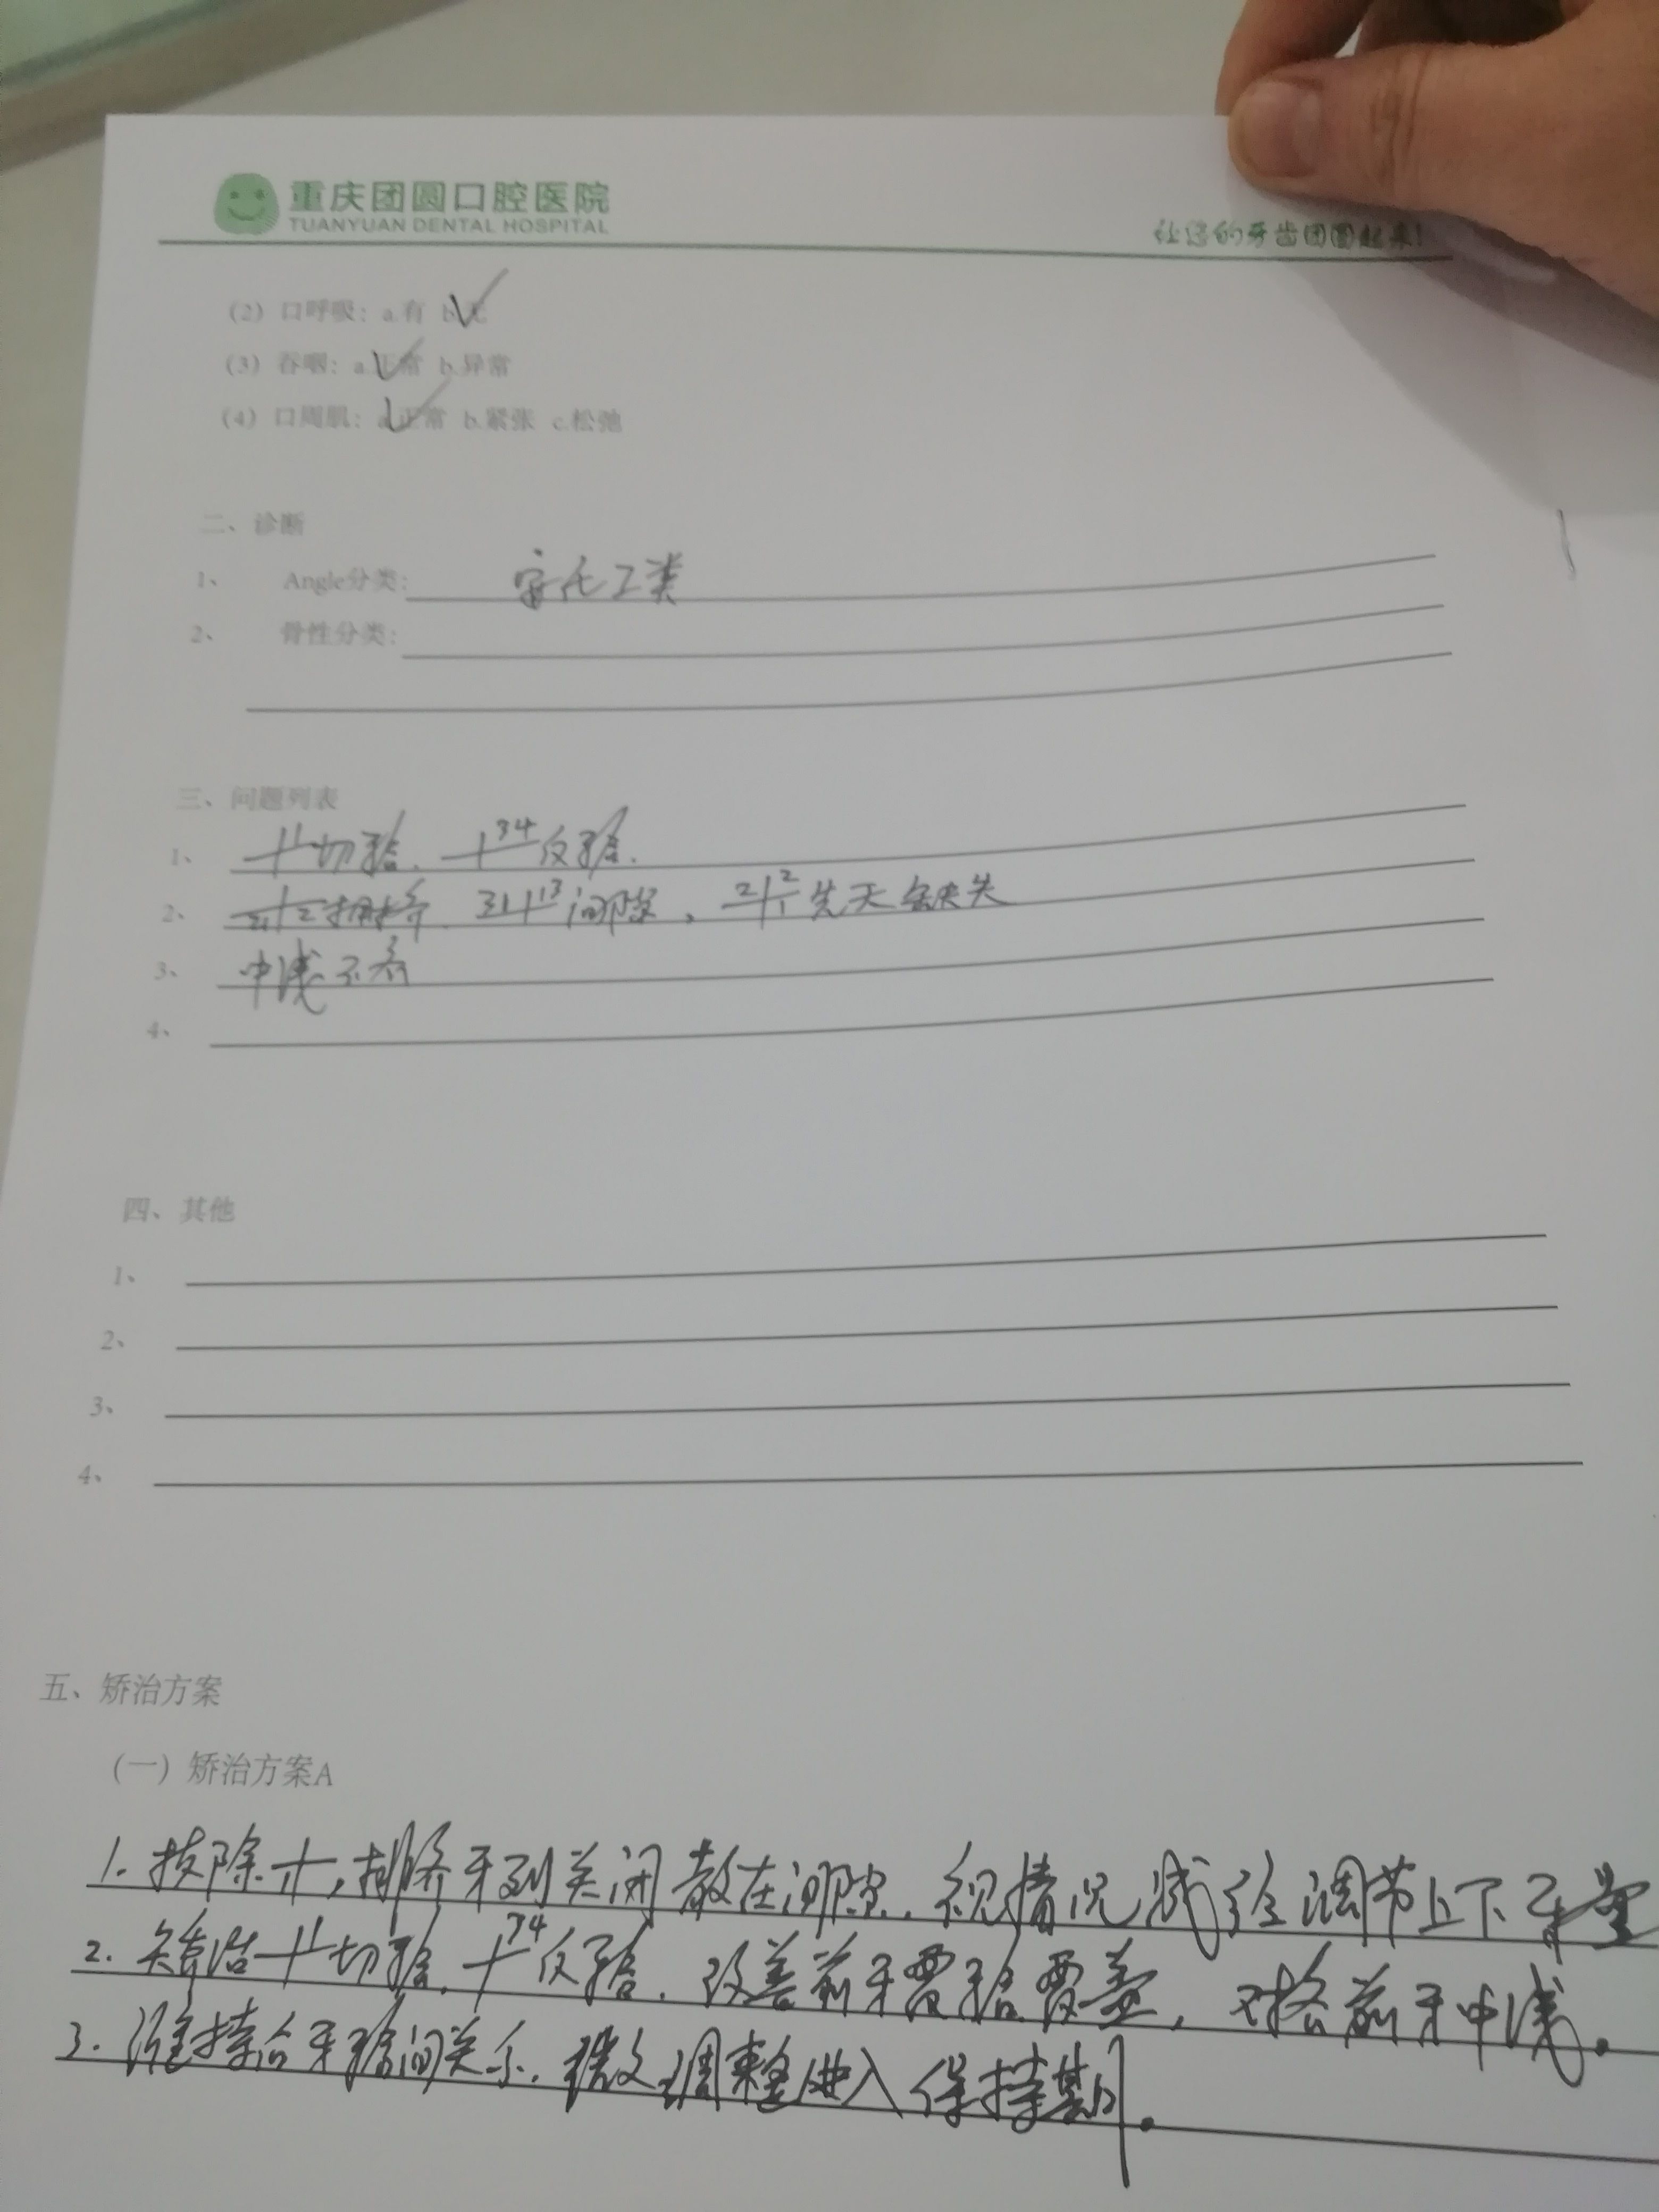 重庆团圆口腔医院
TUANYUAN DENTAL HOSPITAL
让您的牙齿团圆起来!
(2) 口呼吸: a.有 b.无
(3) 吞咽: a.正常 b.异常
(4) 口周肌: a.正常 b.紧张 c.松弛
二、诊断
1、 Angle分类: 安氏I类
2、 骨性分类:
三、问题列表
1、 切𬌗. 34 反𬌗.
2、 间隙, 先天缺失
3、 中线不齐
4、
四、其他
1、
2、
3、
4、
五、矫治方案
(一) 矫治方案A
1. 拔除, 排齐牙列关闭散在间隙. 视情况减径调节上下牙量
2. 矫治 切𬌗. 34 反𬌗. 改善前牙覆𬌗覆盖, 对格前牙中线.
3. 维持后牙𬌗间关系. 微调整进入保持期.